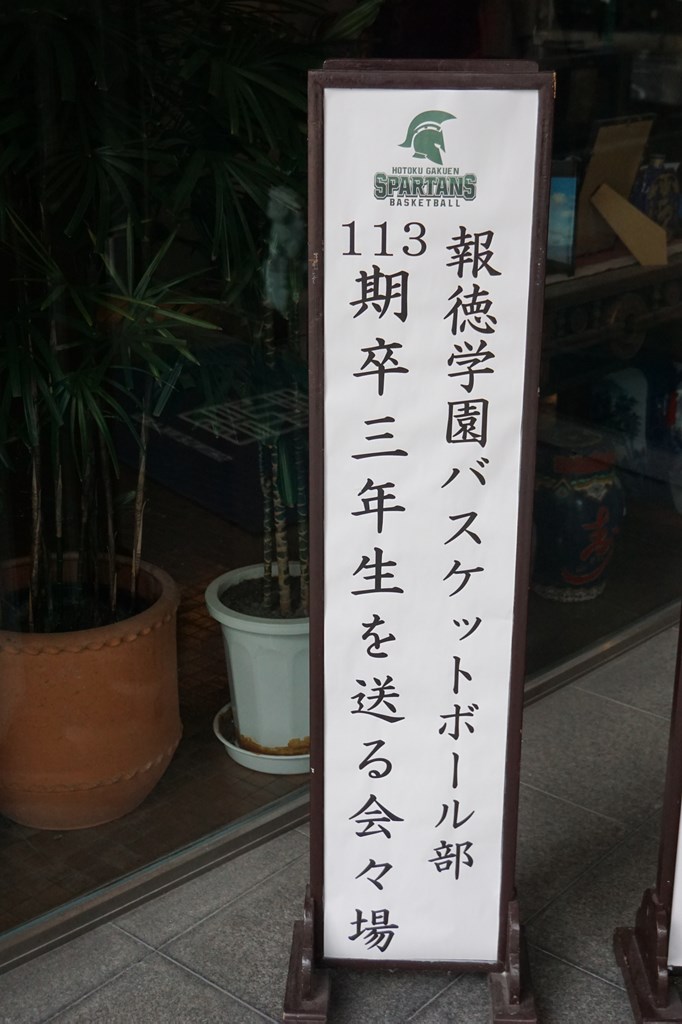 HOTOKU GAKUEN
SPARTANS
BASKETBALL
報徳学園バスケットボール部
113期卒三年生を送る会々場
寿